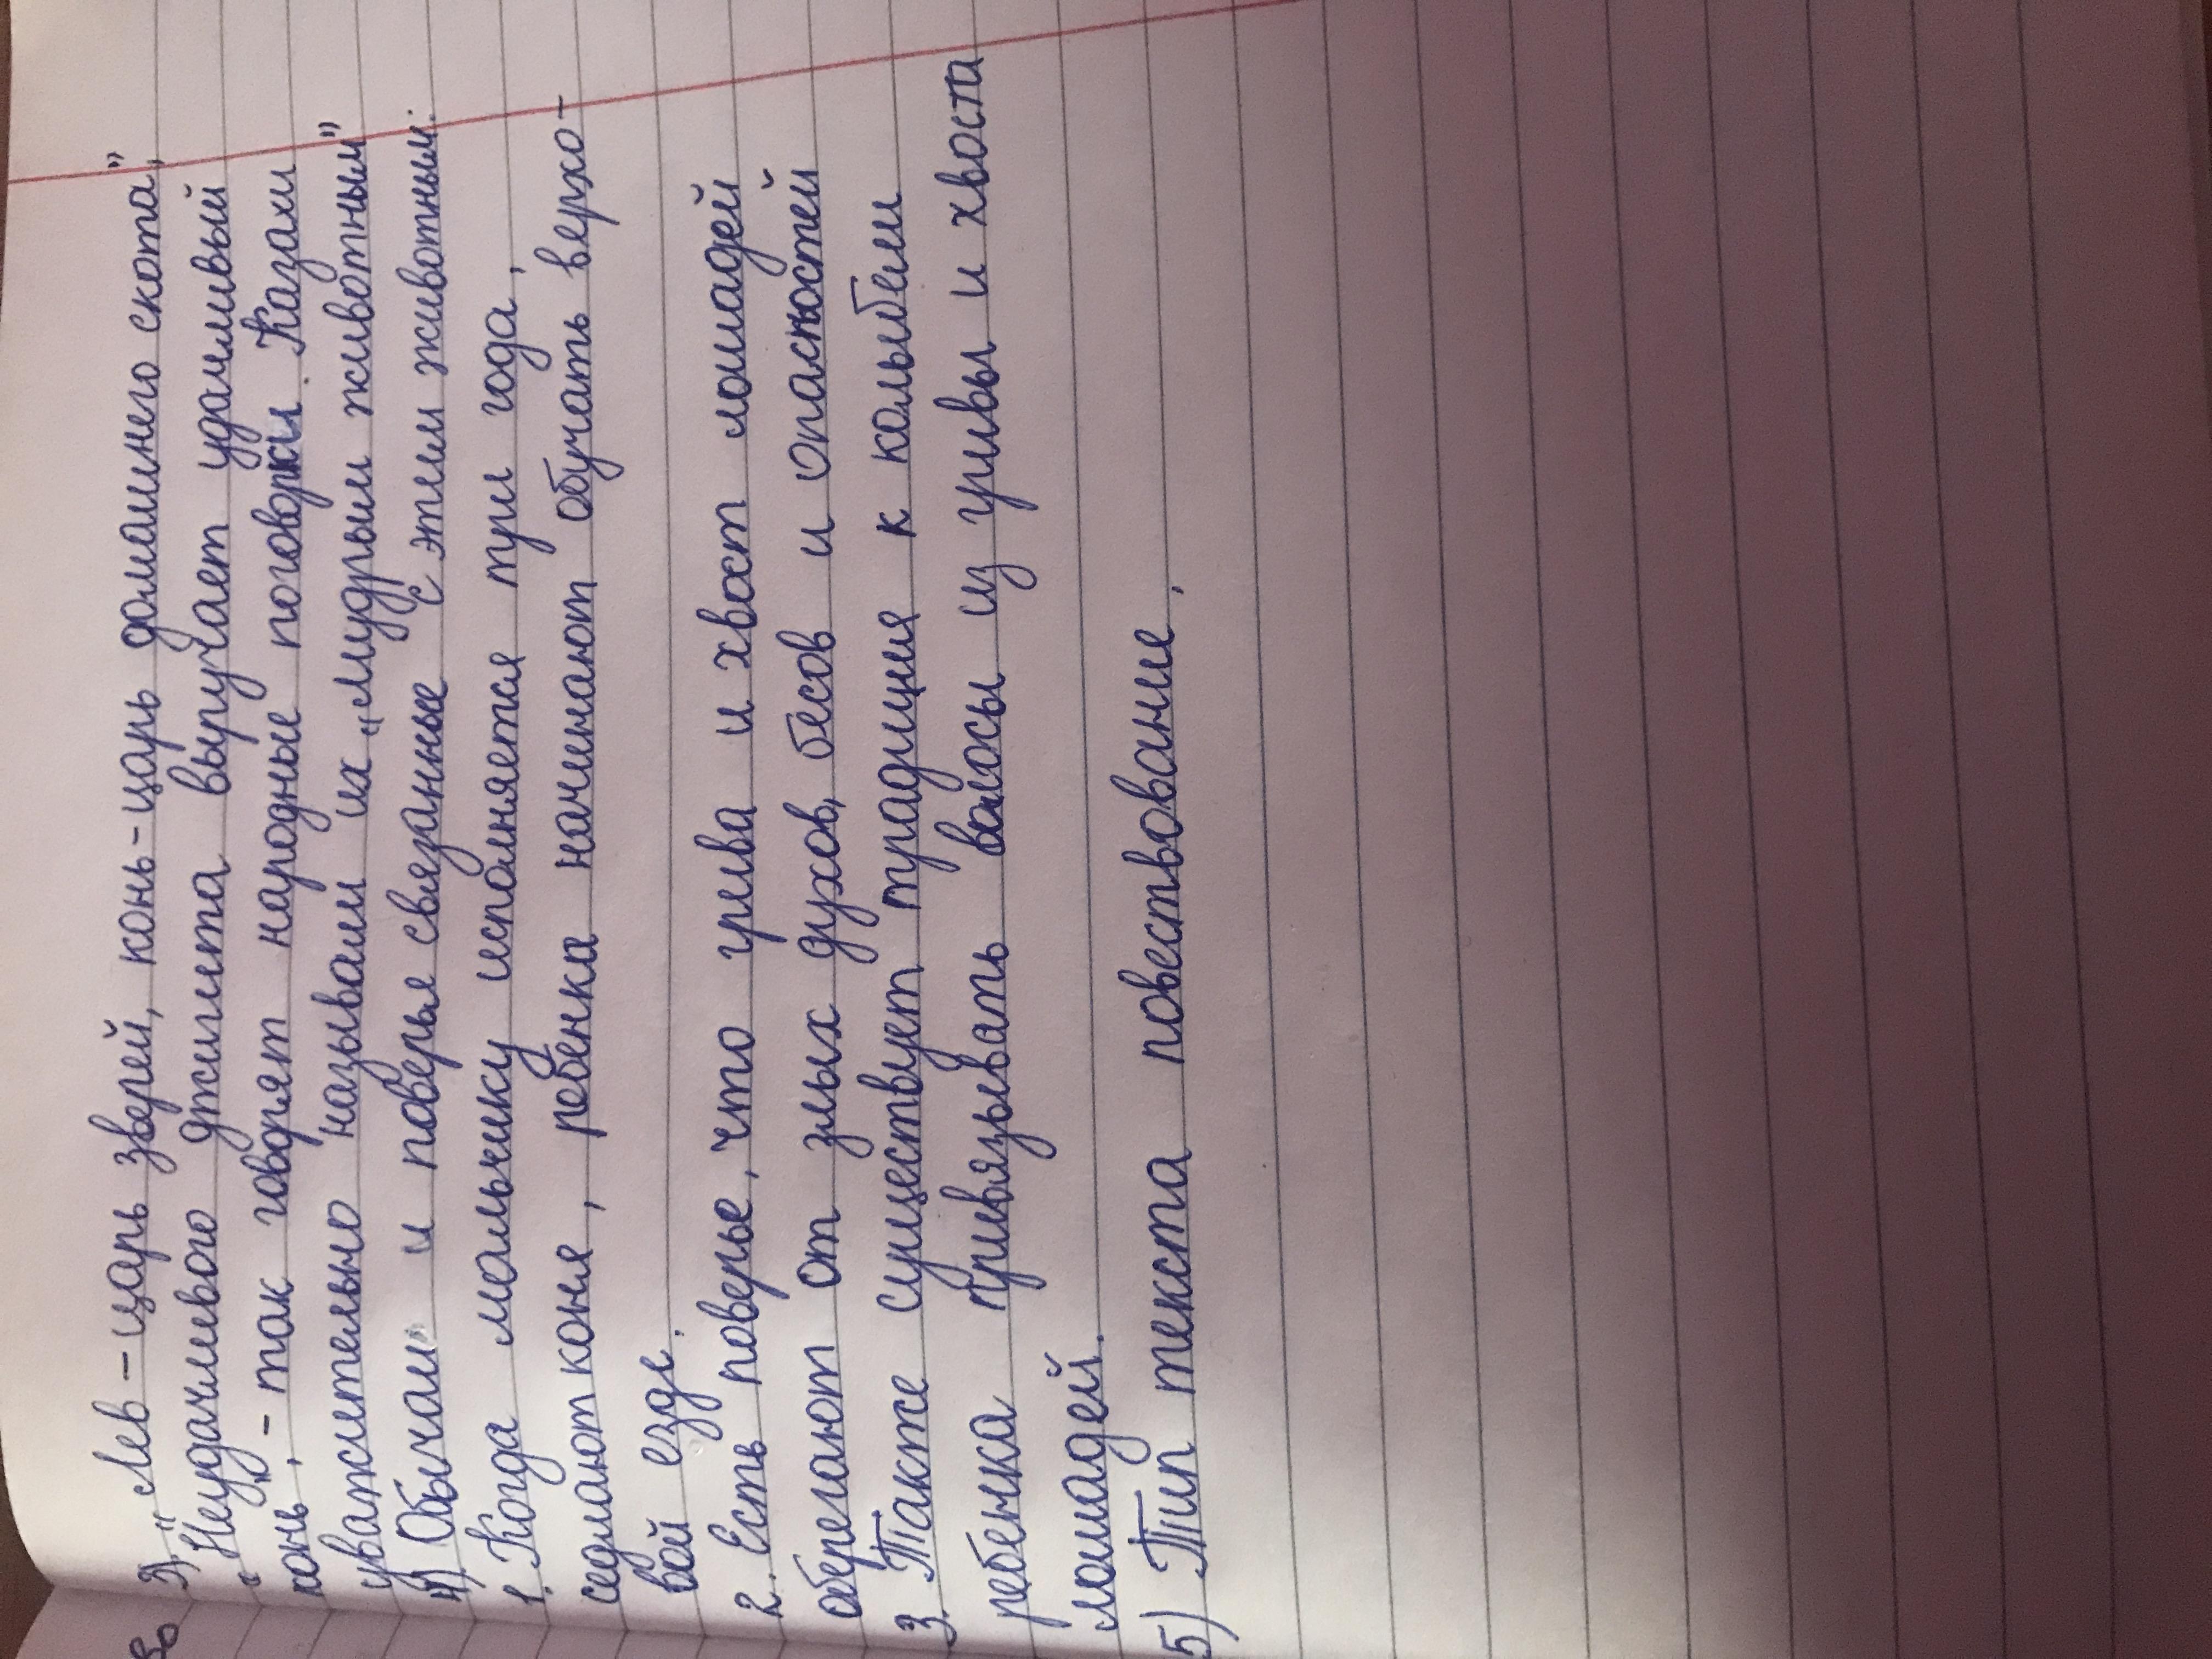 3) "Лев – царь зверей, конь-царь домашнего скота",
"Неудачливого джигита выручает удачливый
конь", – так говорят народные поговорки. Казахи
уважительно называли их "мудрым животным"
4) Обычаи и поверья связанные с этим животным:
1. Когда мальчику исполняется три года,
седлают коня, ребенка начинают обучать верхо-
вой езде.
2. Есть поверье, что грива и хвост лошадей
оберегают от злых духов, бесов и опасностей
3. Также существует традиция к колыбели
ребенка привязывать волосы из гривы и хвоста
лошадей.
5) Тип текста повествование,